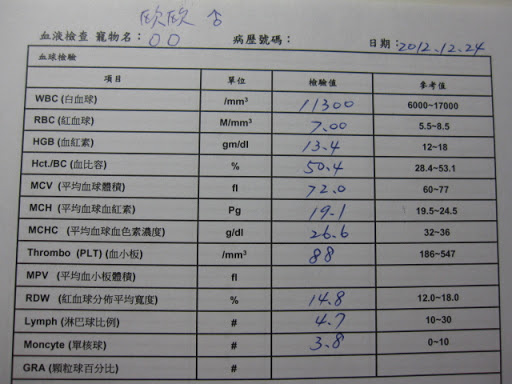 欧欧 ♂
血液檢查 寵物名：OO 病歷號碼： 日期：2012.12.24
血球檢驗
項目 單位 檢驗值 參考值
WBC (白血球) /mm³ 11300 6000~17000
RBC (紅血球) M/mm³ 7.00 5.5~8.5
HGB (血紅素) gm/dl 13.4 12~18
Hct./BC (血比容) % 50.4 28.4~53.1
MCV (平均血球體積) fl 72.0 60~77
MCH (平均血球血紅素) Pg 19.1 19.5~24.5
MCHC (平均血球血色素濃度) g/dl 26.6 32~36
Thrombo (PLT) (血小板) /mm³ 88 186~547
MPV (平均血小板體積) fl
RDW (紅血球分佈平均寬度) % 14.8 12.0~18.0
Lymph (淋巴球比例) # 4.7 10~30
Moncyte (單核球) # 3.8 0~10
GRA (顆粒球百分比) #